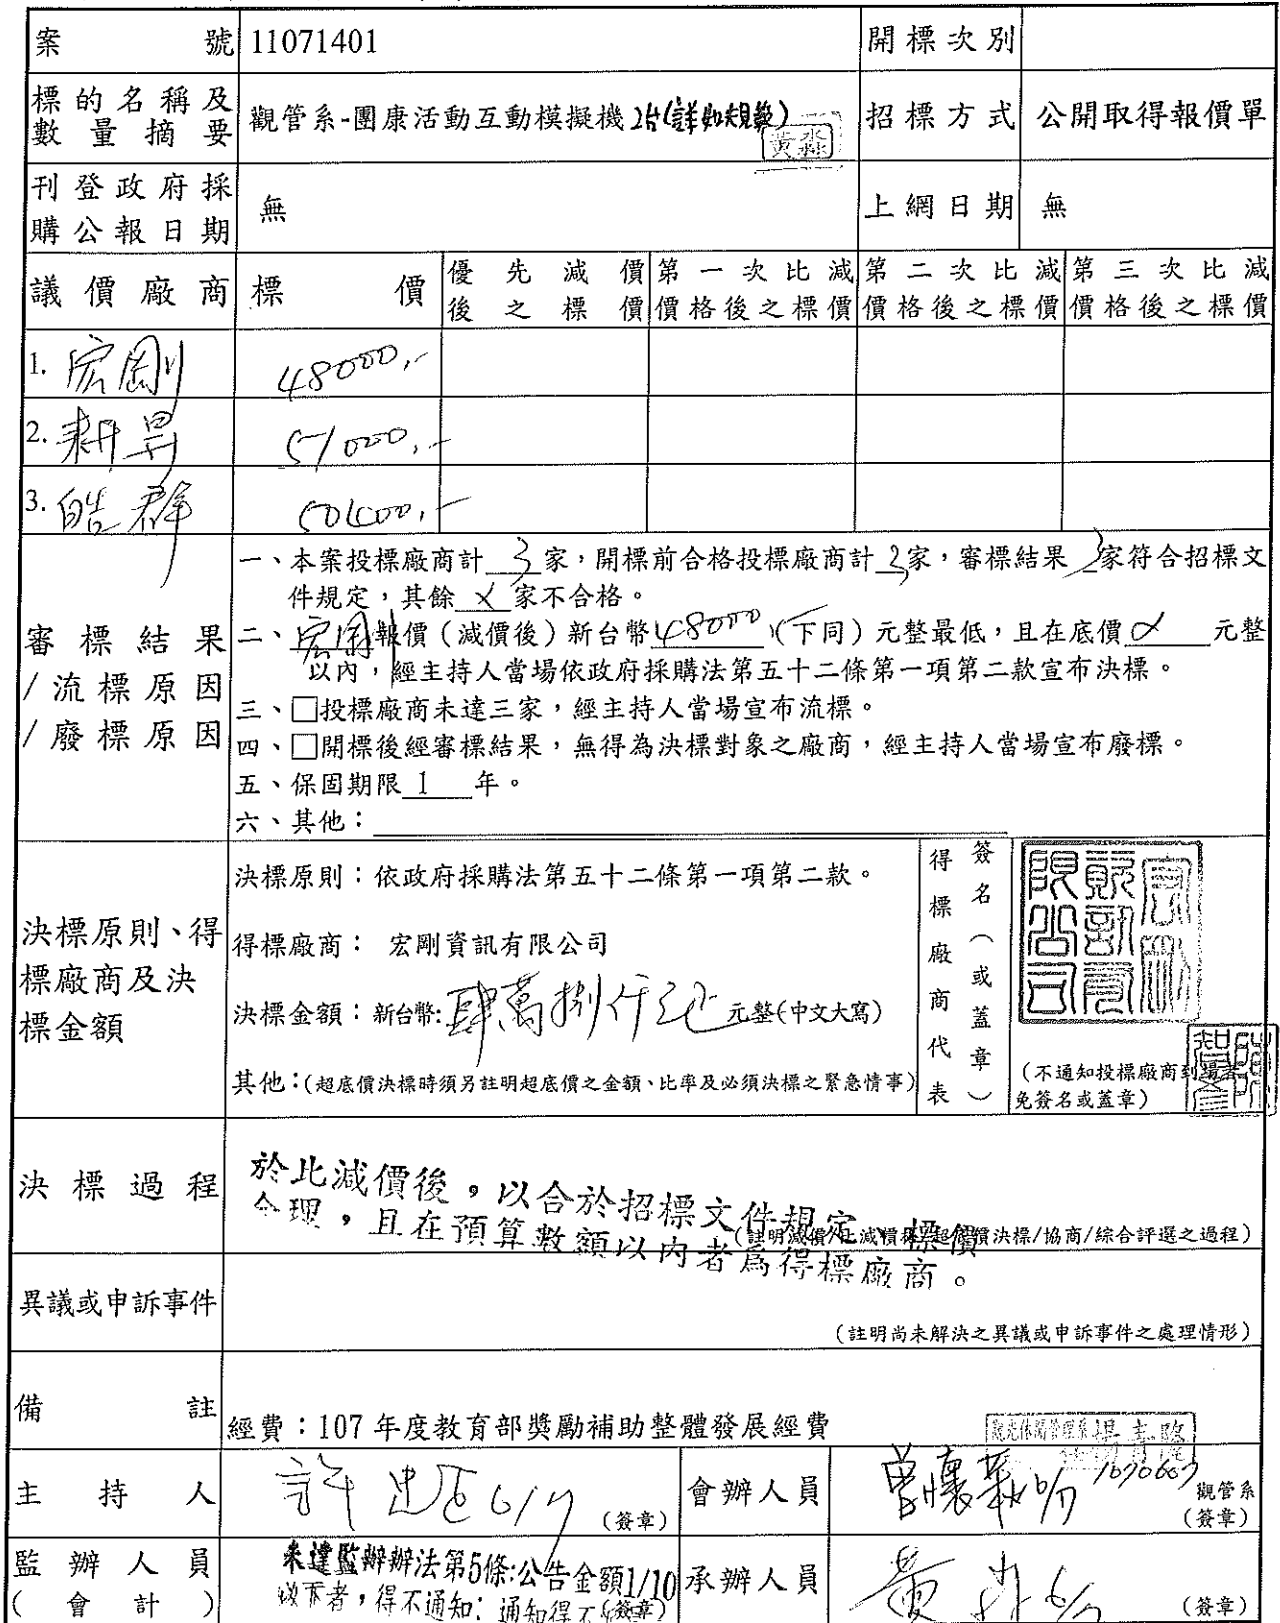 案號 11071401 開標次別
標的名稱及數量摘要 觀管系-團康活動互動模擬機 2台(詳如規範) 招標方式 公開取得報價單
黃淼
刊登政府採購公報日期 無 上網日期 無
議價廠商 標價 優先減價後之標價 第一次比減價格後之標價 第二次比減價格後之標價 第三次比減價格後之標價
1. 宏剛 48000,-
2. 耕昇 51000,-
3. 皓群 50400,-
審標結果/流標原因/廢標原因
一、本案投標廠商計 3 家,開標前合格投標廠商計 3 家,審標結果 3 家符合招標文
件規定,其餘 X 家不合格。
二、宏剛報價(減價後)新台幣 48000 (下同)元整最低,且在底價 元整
以內,經主持人當場依政府採購法第五十二條第一項第二款宣布決標。
三、□投標廠商未達三家,經主持人當場宣布流標。
四、□開標後經審標結果,無得為決標對象之廠商,經主持人當場宣布廢標。
五、保固期限 1 年。
六、其他:
決標原則、得標廠商及決標金額
決標原則:依政府採購法第五十二條第一項第二款。
得標廠商: 宏剛資訊有限公司
決標金額:新台幣:肆萬捌仟元 元整(中文大寫)
其他:(超底價決標時須另註明超底價之金額、比率及必須決標之緊急情事)
得標廠商代表
簽名(或蓋章)
宏剛資訊有限公司
(不通知投標廠商到場者
免簽名或蓋章)
決標過程
於比減價後,以合於招標文件規定、標價
合理,且在預算數額以內者為得標廠商。
(註明減價/比減價格/超底價決標/協商/綜合評選之過程)
異議或申訴事件
(註明尚未解決之異議或申訴事件之處理情形)
備註 經費:107 年度教育部獎勵補助整體發展經費
觀光休閒管理系
主持人 許 6/7 (簽章) 會辦人員 曾懷 6/7 1070607 觀管系
(簽章)
監辦人員(會計) 未達監辦辦法第5條:公告金額1/10
以下者,得不通知;通知得不 (簽章) 承辦人員 黃淼 6/7 (簽章)